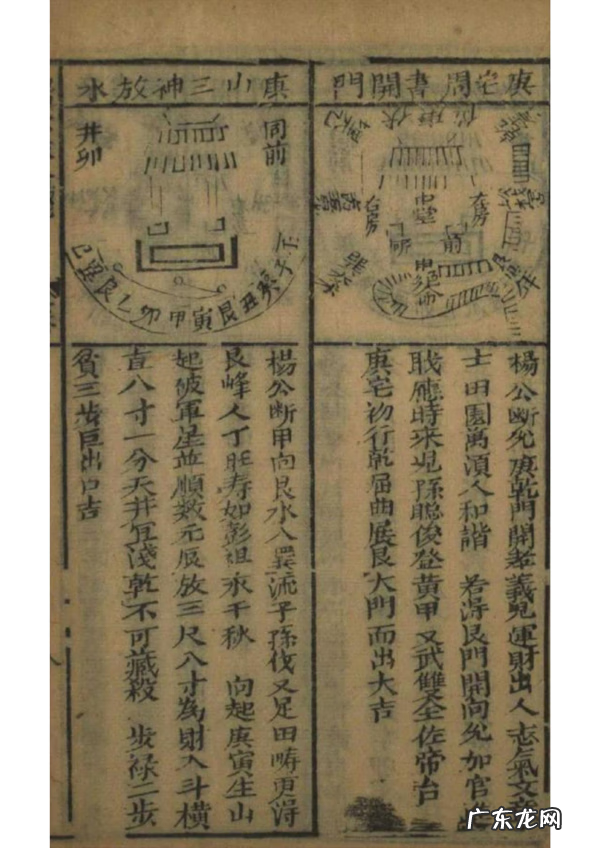 庚宅周書開門
中堂
右房
右房
前
楊公斷兊庚乾門開孝義兒運財出人志氣文
士田園萬頃人和諧 若得艮門開向兊加官
戝應時來児孫聰俊登黄甲又武雙全佐帝台
庚宅初行乾屈曲展艮大門而出大吉
庚山三神放水
同前
井卯
丑艮乙卯甲寅艮丑癸子壬
楊公斷甲向艮水入
流子孫伐又足田疇更淂
艮峰人丁旺寿如彭祖永千秋 向起庚寅生山
起破軍星並順数元辰放三尺八寸為財入斗橫
直八寸一分天井宜淺乾不可藏殺 步禄二步
貧三步巨出口吉
广东龙网